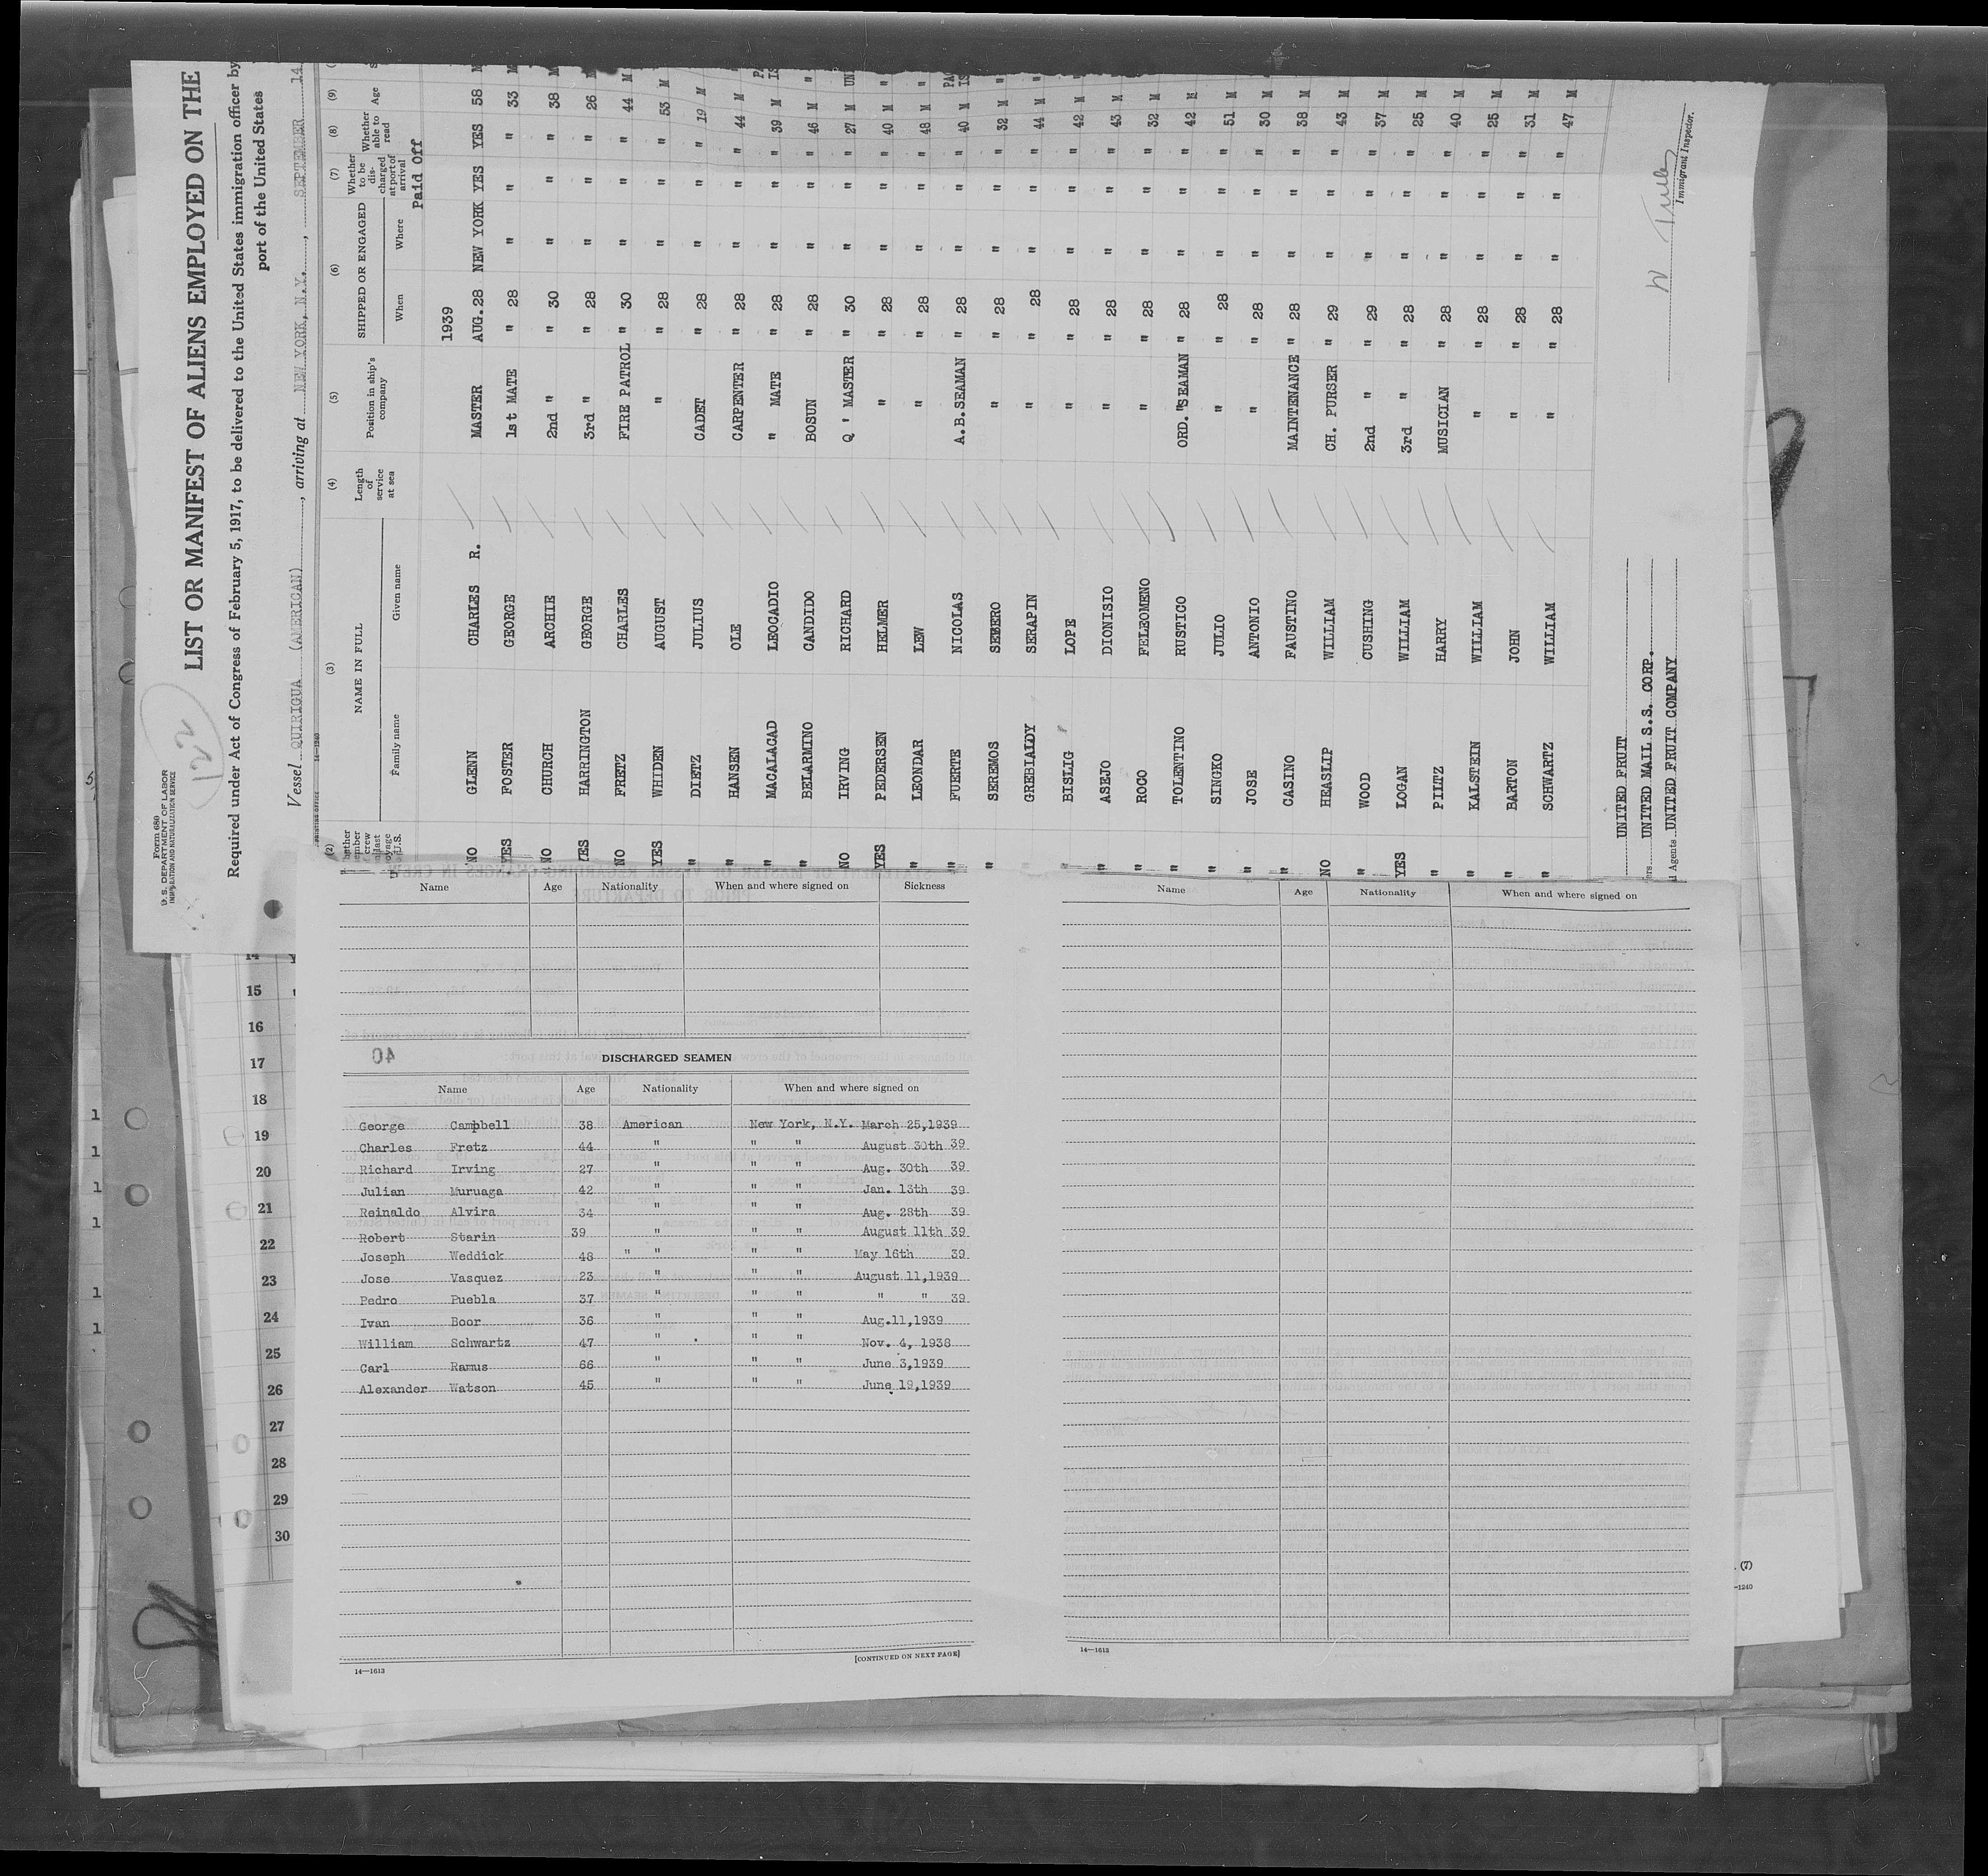 Form 689
U. S. DEPARTMENT OF LABOR
IMMIGRATION AND NATURALIZATION SERVICE
122
LIST OR MANIFEST OF ALIENS EMPLOYED ON THE
Required under Act of Congress of February 5, 1917, to be delivered to the United States immigration officer by
port of the United States
Vessel QUIRIGUA (AMERICAN), arriving at NEW YORK, N.Y., SEPTEMBER 14
(2) (3) (4) (5) (6) (7) (8) (9)
NAME IN FULL Length of service at sea Position in ship's company SHIPPED OR ENGAGED Whether to be discharged at port of arrival Whether able to read Age
Family name Given name When Where
1939 Paid Off
NO GLENN CHARLES R. MASTER AUG. 28 NEW YORK YES YES 58 M
YES FOSTER GEORGE 1st MATE " 28 " " " 33 M
NO CHURCH ARCHIE 2nd " " 30 " " " 38 M
YES HARRINGTON GEORGE 3rd " " 28 " " " 26 M
NO FRETZ CHARLES FIRE PATROL " 30 " " " 44 M
YES WHIDEN AUGUST " " 28 " " " 53 M
" DIETZ JULIUS CADET " 28 " " " 19 M
" HANSEN OLE CARPENTER " 28 " " " 44 M
" MACALACAD LEOCADIO " MATE " 28 " " " 39 M
" BELARMINO CANDIDO BOSUN " 28 " " " 46 M
NO IRVING RICHARD Q ' MASTER " 30 " " " 27 M
YES PEDERSEN HELMER " " 28 " " " 40 M
" LEONDAR LEW " " 28 " " " 48 M
" FUERTE NICOLAS A.B.SEAMAN " 28 " " " 40 M
" SEREMOS SEBERO " " 28 " " " 32 M
GREBIALDY SERAPIN " " 28 " " " 44 M
" BISLIG LOPE " " 28 " " " 42 M
" ASEJO DIONISIO " " 28 " " " 43 M
" ROCO FELEOMENO " " 28 " " " 32 M
" TOLENTINO RUSTICO ORD. "SEAMAN " 28 " " " 42 M
" SINGKO JULIO " " 28 " " " 51 M
" JOSE ANTONIO " " 28 " " " 30 M
" CASINO FAUSTINO MAINTENANCE " 28 " " " 38 M
NO HEASLIP WILLIAM CH. PURSER " 29 " " " 43 M
" WOOD CUSHING 2nd " " 29 " " " 37 M
YES LOGAN WILLIAM 3rd " " 28 " " " 25 M
" PILTZ HARRY MUSICIAN " 28 " " " 40 M
" KALSTEIN WILLIAM " " 28 " " " 25 M
" BARTON JOHN " " 28 " " " 31 M
" SCHWARTZ WILLIAM " " 28 " " " 47 M
UNITED FRUIT
UNITED MAIL S.S. CORP.
Agents UNITED FRUIT COMPANY
Immigrant Inspector.
Name Age Nationality When and where signed on Sickness
40
DISCHARGED SEAMEN
Name Age Nationality When and where signed on
George Campbell 38 American New York, N.Y. March 25,1939
Charles Fretz 44 " " " August 30th 39
Richard Irving 27 " " " Aug. 30th 39
Julian Muruaga 42 " " " Jan. 13th 39
Reinaldo Alvira 34 " " " Aug. 28th 39
Robert Starin 39 " " " August 11th 39
Joseph Weddick 48 " " " " May 16th 39
Jose Vasquez 23 " " " August 11,1939
Pedro Puebla 37 " " " " " 39
Ivan Boor 36 " " " Aug.11,1939
William Schwartz 47 " " " Nov. 4, 1938
Carl Ramus 66 " " " June 3,1939
Alexander Watson 45 " " " June 19,1939
14—1613
[CONTINUED ON NEXT PAGE]
Name Age Nationality When and where signed on
14—1613
14
15
16
17
18
19
20
21
22
23
24
25
26
27
28
29
30
1
1
1
1
1
1
(7)
—1240